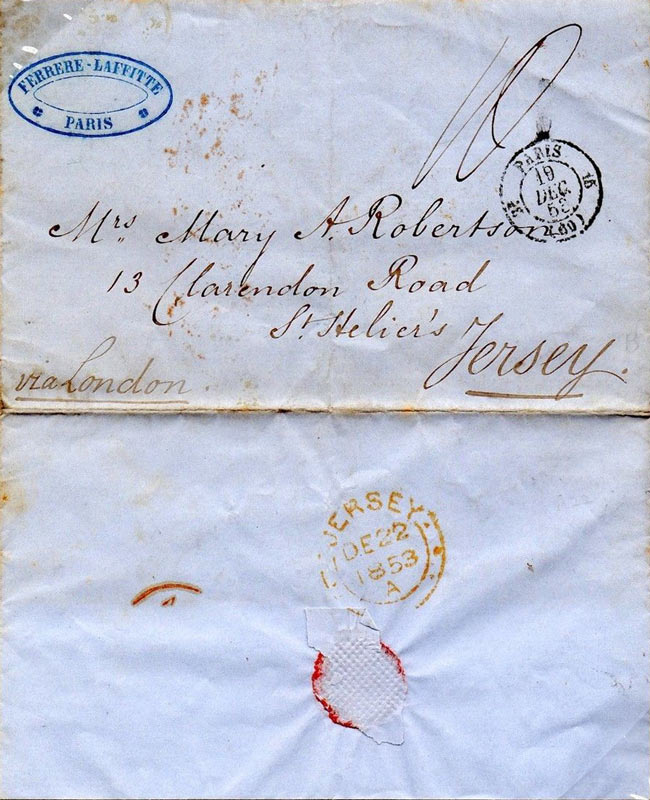 FERRERE-LAFFITTE
PARIS
10
PARIS
19
DEC.
53
(60)
15
Mrs Mary A. Robertson
13 Clarendon Road
St Helier's
Jersey.
via London.
JERSEY.
DE 22
1853
A